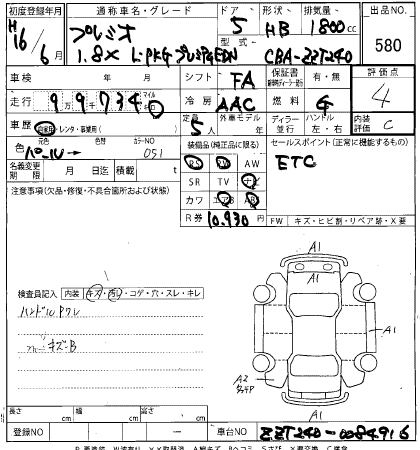 初度登録年月 通称車名・グレード ドア 形状 排気量 出品NO.
H16/6月 プレミオ 5 HB 1800cc
1.8X L-PKG プレミアムEDN 型式 CBA-ZZT240 580
車検 年 月 シフト FA 保証書 有・無 評価点
走行 9万9千734 マイル 冷房 AAC 燃料 4
車歴 自家用・レンタ・事業用( ) 定員 5人 外車モデル 年 ディーラー 並行 ハンドル 左・右 内装 C
色 元色 パール 色替 カラーNO 051 装備品(純正品に限る) セールスポイント(正常に機能するもの)
名義変更期限 月 日迄 積載 t RS PW AW ETC
注意事項(欠品・修復・不具合箇所および状態) SR TV ナビ
カワ エアB ABS
R券 10,930円 FW キズ・ヒビ割・リペア跡・X要
A1
A1
検査員記入 内装 キズ・汚レ・コゲ・穴・スレ・キレ
ハンドルワレ
キズ-B
A1
A2
A1
長さ cm 幅 cm 高さ cm
登録NO - 車台NO ZZT240-0084916